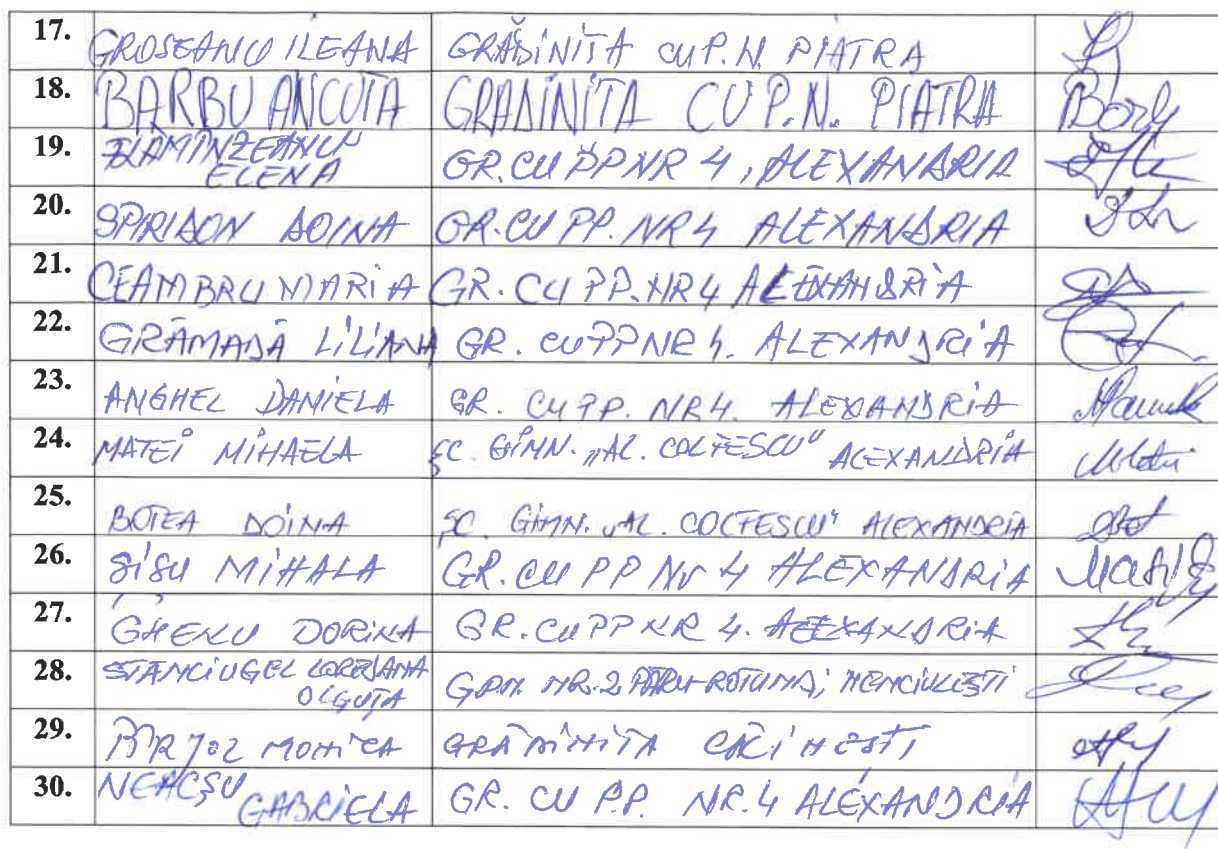 17. GROSEANU ILEANA GRĂDINITA CU P.N. PIATRA
18. BARBU ANCUTA GRADINITA CU P.N. PIATRA
19. ELENA GR. CU PP NR 4, ALEXANDRIA
20. SPIRIDON DOINA GR. CU PP. NR 4 ALEXANDRIA
21. CEAMBRU MARIA GR. CU PP. NR 4 ALEXANDRIA
22. GRĂMADĂ LILIANA GR. CU PP NR 4. ALEXANDRIA
23. ANGHEL DANIELA GR. CU PP. NR 4. ALEXANDRIA
24. MATEI MIHAELA ȘC. GIMN. „AL. COLFESCU" ALEXANDRIA
25. BOTEA DOINA ȘC. GIMN. „AL. COLFESCU" ALEXANDRIA
26. SISU MIHALA GR. CU PP Nr 4 ALEXANDRIA
27. GHENU DORINA GR. CU PP NR 4. ALEXANDRIA
28. STANCIUGEL LOREDANA
OLGUȚA NR. 2 ROTUND,
29. MONICA GRĂDINITA
30. NEACȘU
GABRIELA GR. CU P.P. NR. 4 ALEXANDRIA